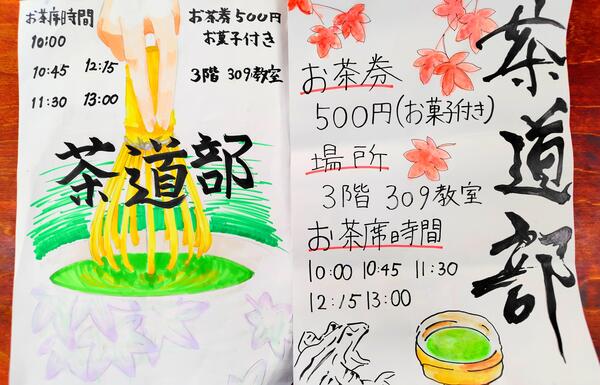 お茶席時間
10:00
10:45 12:15
11:30 13:00
お茶券500円
お菓子付き
3階 309教室
茶道部
茶道部
お茶券
500円(お菓子付き)
場所
3階 309教室
お茶席時間
10:00 10:45 11:30
12:15 13:00